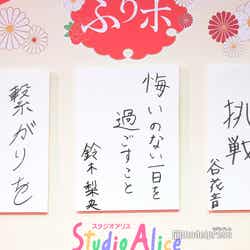 ふりホ
繋がりを
悔いのない一日を
過ごすこと
鈴木梨央
挑戦
谷花音
スタジオアリス
Studio Alice
modelpress